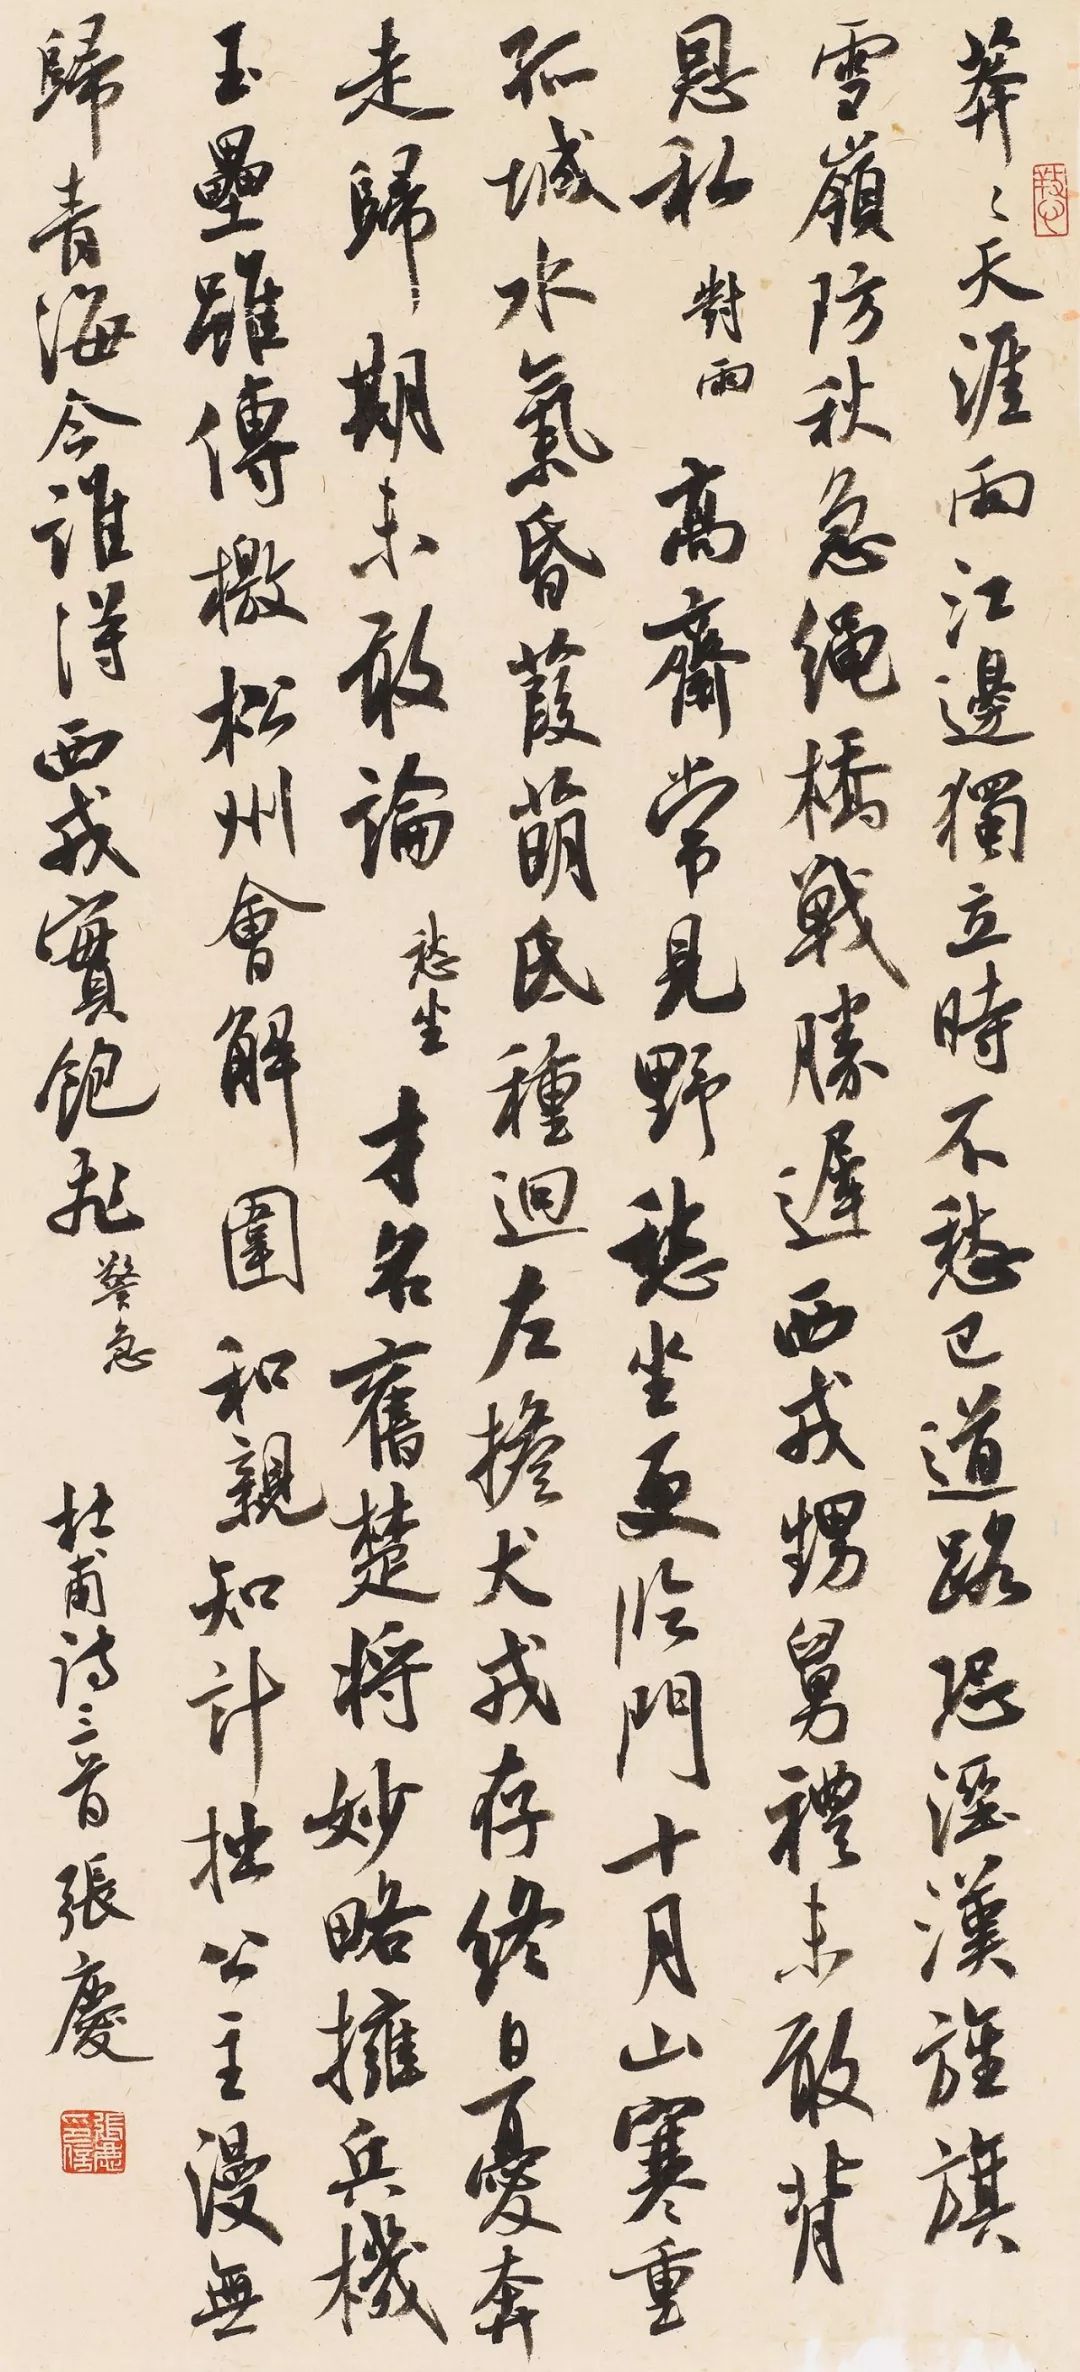 莽〻天涯雨江邊獨立時不愁巴道路恐溼漢旌旗
雪嶺防秋急繩橋戰勝遲西戎甥舅禮未敢背
恩私 對雨 高齋常見野愁坐更臨門十月山寒重
孤城水氣昏葭萌氐種迴左擔犬戎存終日憂奔
走歸期未敢論 愁坐 才名舊楚將妙略擁兵機
玉壘雖傳檄松州會解圍和親知計拙公主漫無
歸青海今誰得西戎實飽飛 警急
杜甫詩三首 張慶
張慶印信